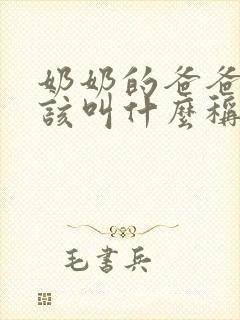 奶奶的爸爸
該叫什麼稱
毛書兵